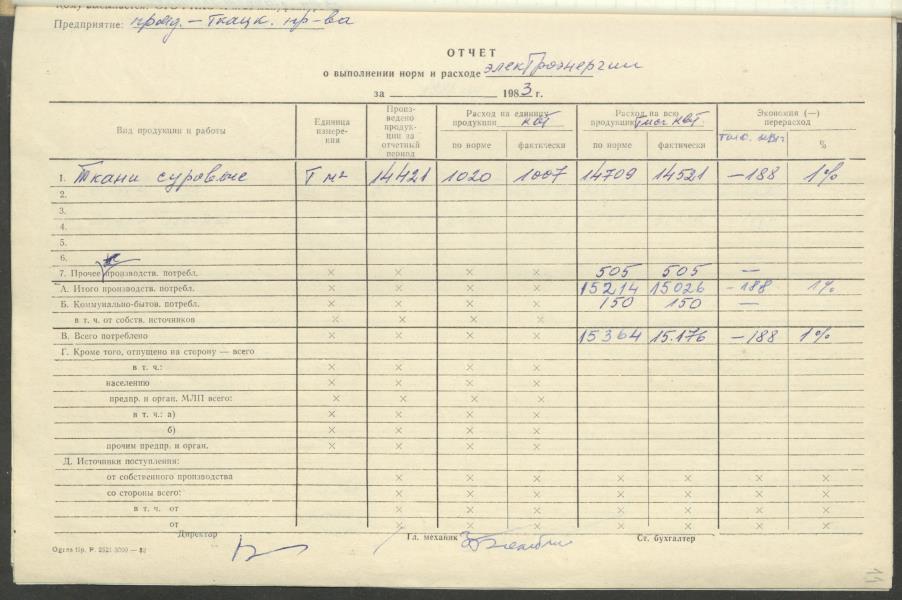 Предприятие: пряд.-ткацк. пр-ва
ОТЧЕТ
о выполнении норм и расходе электроэнергии
за 1983 г.
Вид продукции и работы
Единица измере-
ния
Произ-
ведено
продук-
ции за
отчетный
период
Расход на единицу
продукции квт
по норме фактически
Расход на всю
продукцию тыс квт.
по норме фактически
Экономия (—)
перерасход
%
1. Ткани суровые Т м² 14421 1020 1007 14709 14521 —188 1%
2.
3.
4.
5.
6.
7. Прочее производств. потребл. × × × × 505 505 —
А. Итого производств. потребл. × × × × 15214 15026 —188 1%
Б. Коммунально-бытов. потребл. × × × × 150 150 —
в т. ч. от собств. источников × × × ×
В. Всего потреблено × × × × 15364 15.176 —188 1%
Г. Кроме того, отпущено на сторону — всего
в т. ч.: × × × ×
населению × × × ×
предпр. и орган. МЛП всего: × × × ×
в т. ч.: а) × × × ×
б) × × × ×
прочим предпр. и орган. × × × ×
Д. Источники поступления:
от собственного производства × × × × × ×
со стороны всего: × × × × × ×
в т. ч. от × × × × × ×
от × × × × × ×
Директор Гл. механик Ст. бухгалтер
Ogres tip. P. 2521 3000 — 82
11